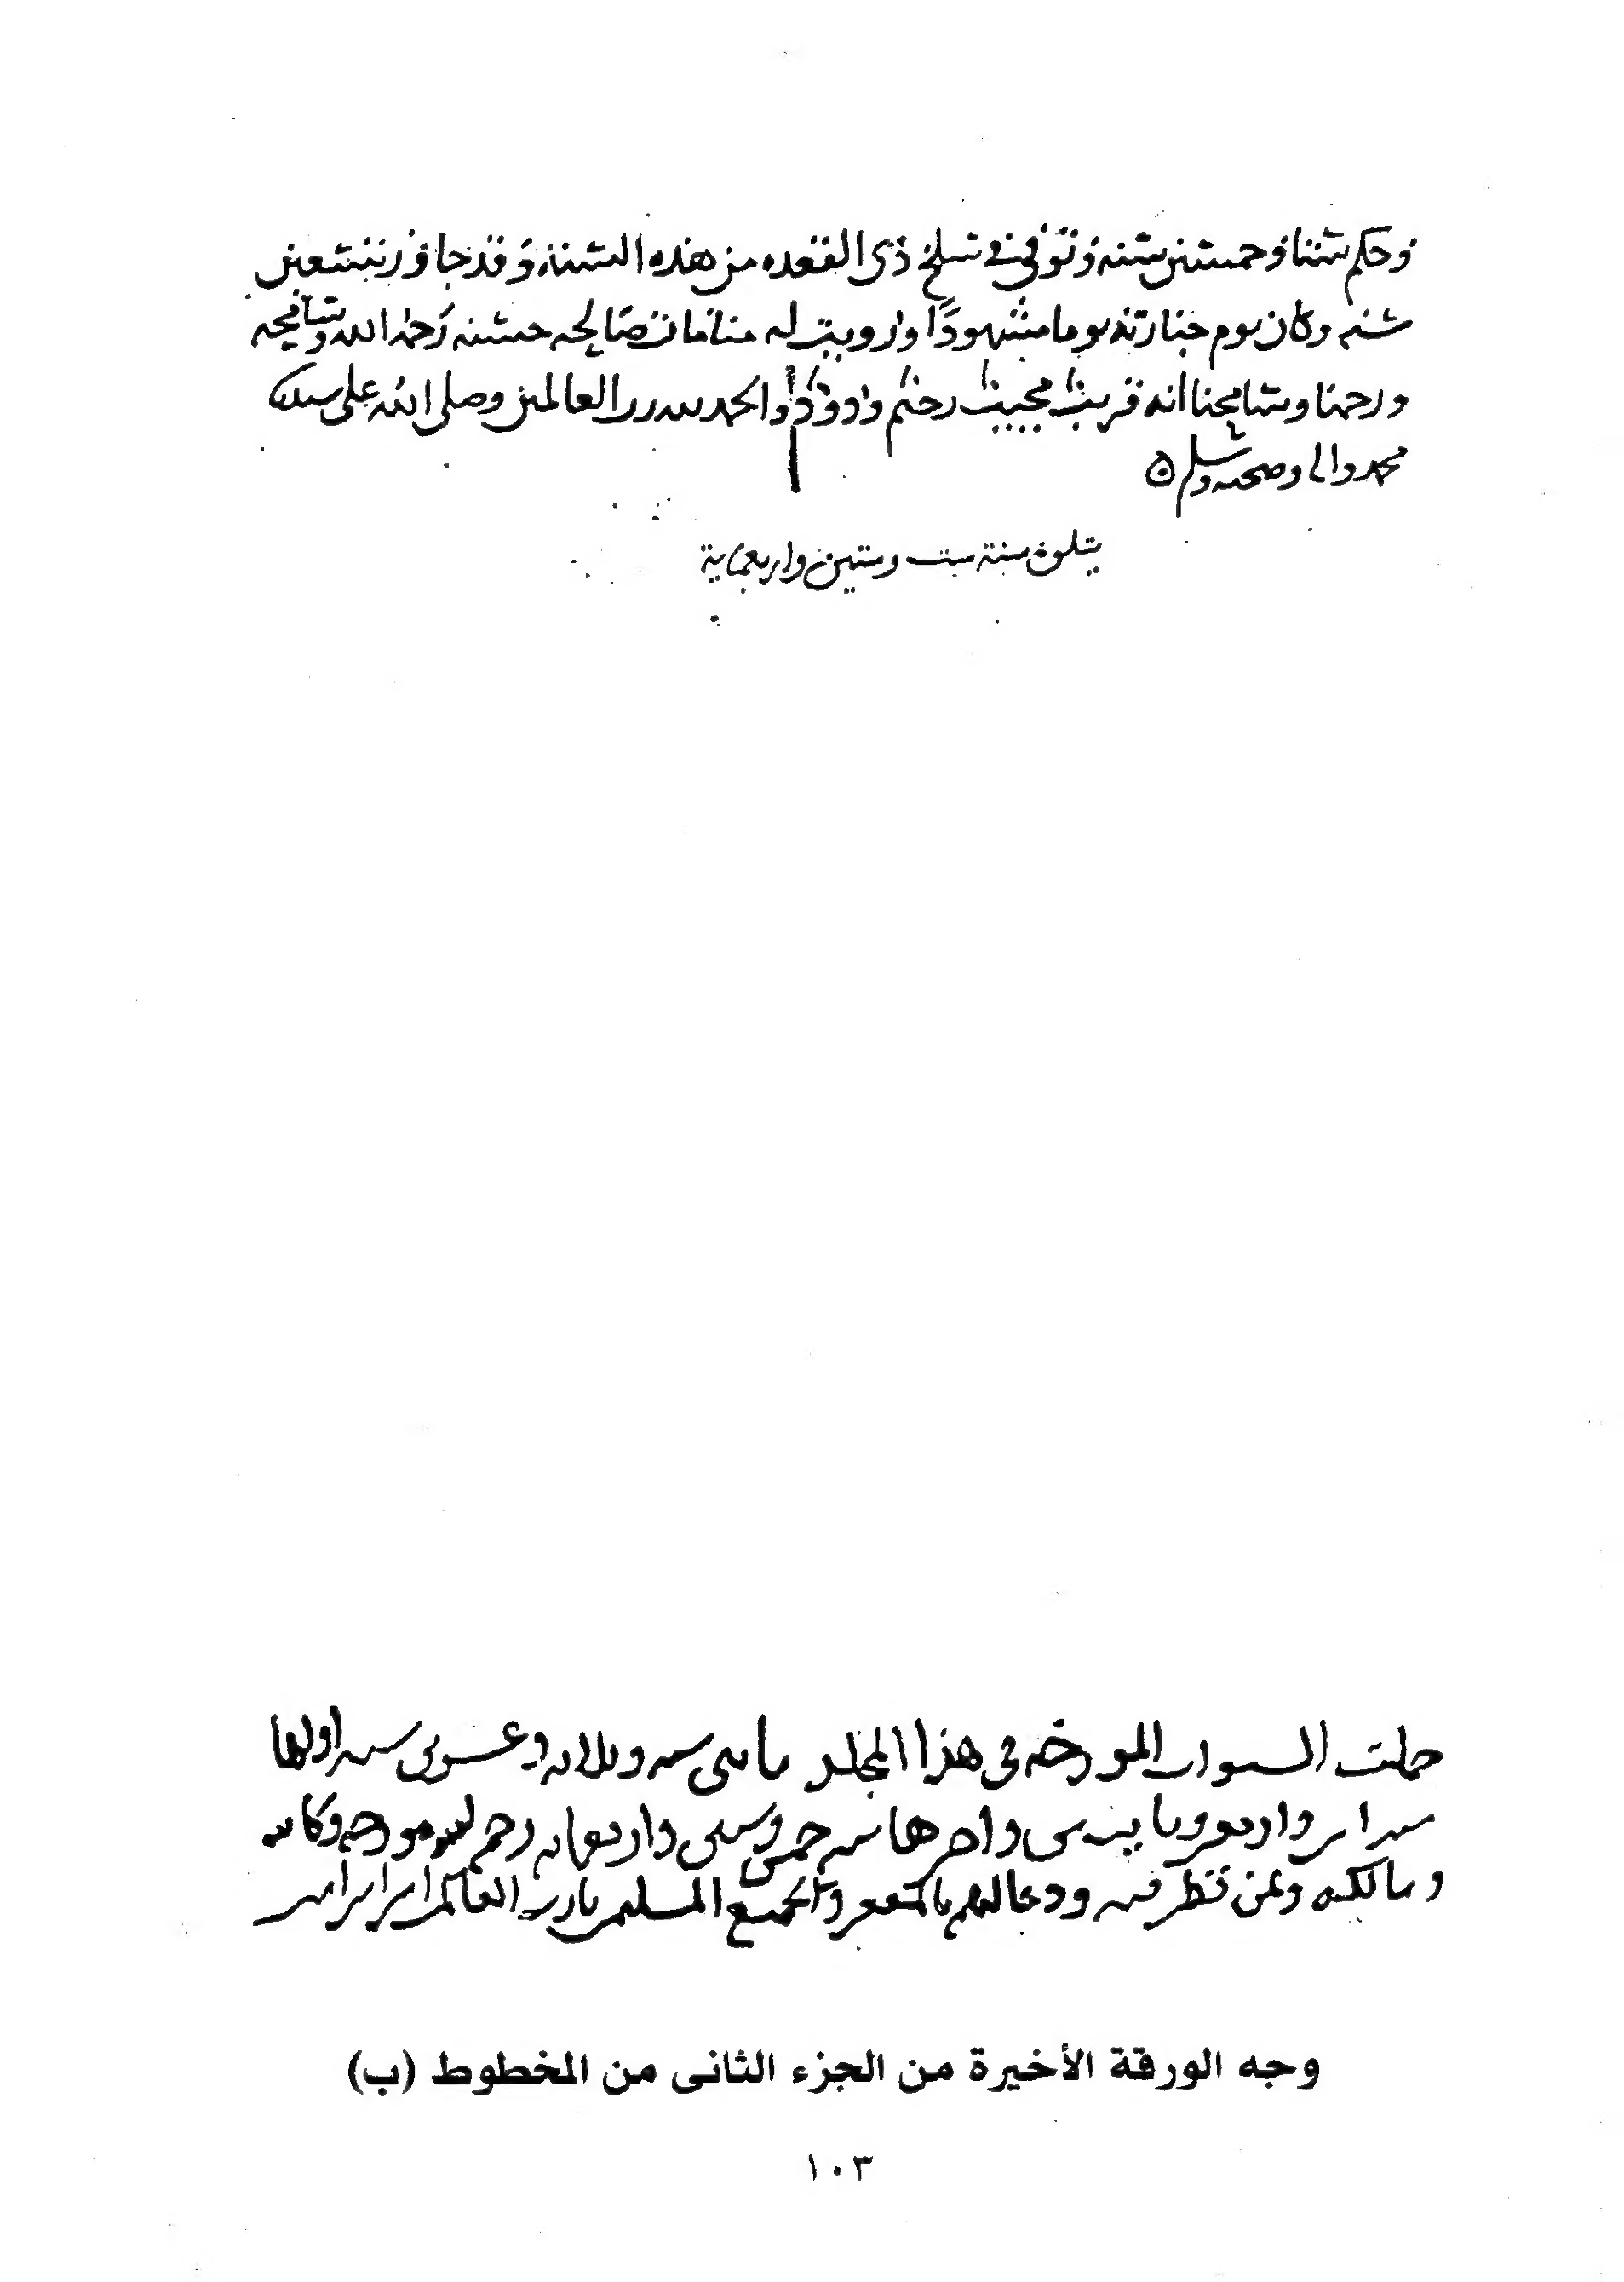 وحكم ستا وخمسين سنه وتوفي في سلخ ذى القعده من هذه السنة وقد جاوز تسعين
سنه وكان يوم جنازته يوما مشهودًا وارويت له منامات صالحه حسنه رحمه الله وسامحه
ورحمنا وسامحنا انه قريب مجيب رحيم ودود والحمد لله رب العالمين وصلى الله على سيدنا
محمد واله وصحبه وسلم
يتلوه سنة ست وستين واربعماية
جملت السنوات المورخه فى هذا المجلد مايتى سنه وثلاثه وعشرين سنه اولها
سنه وارىعىن ومايتىن واخرها سنه خمس وستىن واربعمايه رحم الله مورخه وكاتبه
ومالكه ولمن نظر فيه ودعا لهم بالمغفره ولجميع المسلمين يارب العالمين امين امين امين
وجه الورقة الأخيرة من الجزء الثانى من المخطوط (ب)
١٠٣